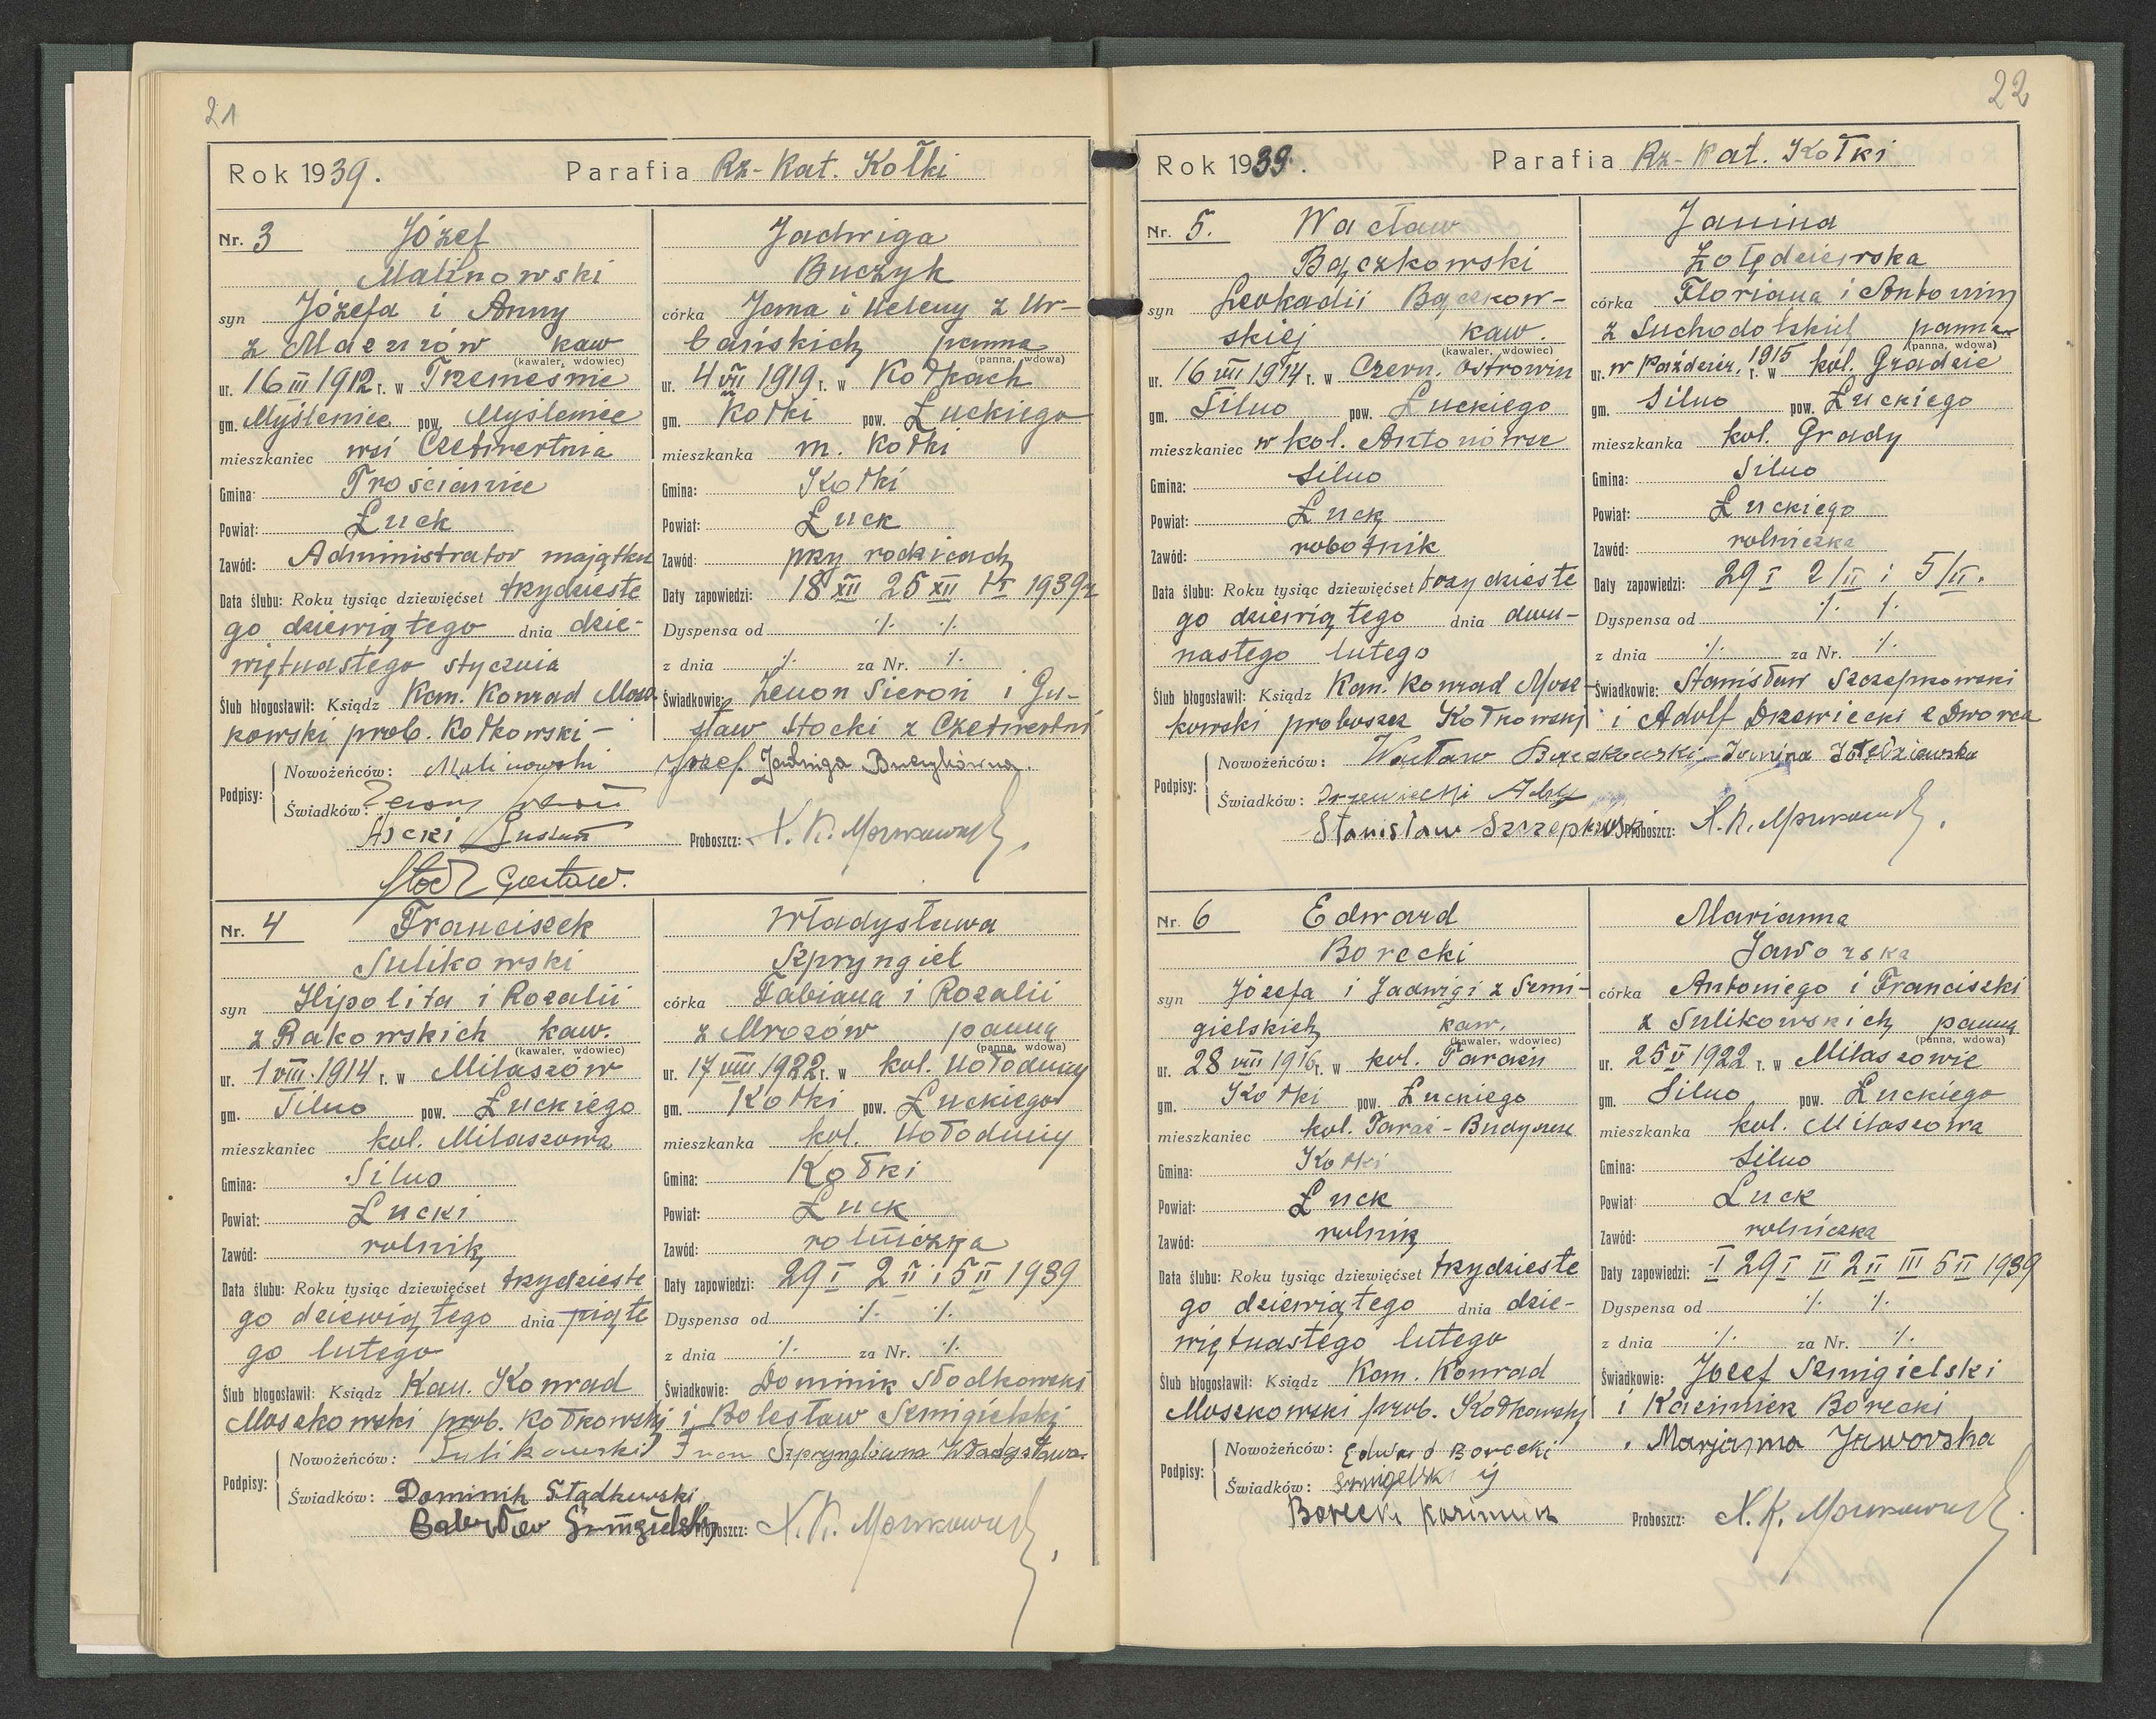 21
Rok 1939. Parafia Rz-Kat. Kołki
Nr. 3 Józef
Malinowski
syn Józefa i Anny
z Mazurów kaw
(kawaler, wdowiec)
ur. 16 III 1912 r. w Trzemeśnie
gm. Myślenice pow. Myślenice
mieszkaniec wsi Czetwertnia
Gmina: Trościanie
Powiat: Łuck
Zawód: Administrator majątku
Data ślubu: Roku tysiąc dziewięćset trzydzieste
go dziewiątego dnia dzie-
więtnastego stycznia
Ślub błogosławił: Ksiądz Kan. Konrad Mosz
kowski prob. Kołkowski -
Jadwiga
Buczyk
córka Jana i Heleny z Ur-
bańskich panna
(panna, wdowa)
ur. 4 VII 1919 r. w Kołkach
gm. Kołki pow. Łuckiego
mieszkanka m. Kołki
Gmina: Kołki
Powiat: Łuck
Zawód: przy rodzicach
Daty zapowiedzi: 18 XII 25 XII 1 I 1939 r
Dyspensa od ./. ./.
z dnia ./. za Nr. ./.
Świadkowie: Zenon Sieroń i Gu-
staw Stocki z Czetwertni
Podpisy:
Nowożeńców: Malinowski Józef Jadwiga Buczykówna.
Świadków: Zenon
Proboszcz: X. K. Moszkowski
Nr. 4 Franciszek
Sulikowski
syn Hipolita i Rozalii
z Rakowskich kaw.
(kawaler, wdowiec)
ur. 1 VIII. 1914 r. w Milaszów
gm. Silno pow. Łuckiego
mieszkaniec kol. Milaszowa
Gmina: Silno
Powiat: Łucki
Zawód: rolnik
Data ślubu: Roku tysiąc dziewięćset trzydzieste
go dziewiątego dnia piąte
go lutego
Ślub błogosławił: Ksiądz Kan. Konrad
Moszkowski prob. Kołkowski
Władysława
Szpryngiel
córka Fabiana i Rozalii
z Mrozów panną
(panna, wdowa)
ur. 17 VIII 1922 r. w kol. Hołodnicy
gm. Kołki pow. Łuckiego
mieszkanka kol. Hołodnicy
Gmina: Kołki
Powiat: Łuck
Zawód: rolniczka
Daty zapowiedzi: 29 I 2 II i 5 II 1939
Dyspensa od ./. ./.
z dnia ./. za Nr. ./.
Świadkowie: Dominik Słodkowski
i Bolesław Szmigielski
Podpisy:
Nowożeńców: Sulikowski Fran Szprynglówna Władysława.
Świadków: Dominik Stądkowski
Bolesław Szmigielski
Proboszcz: X. K. Moszkowski
22
Rok 1939. Parafia Rz-Kat. Kołki
Nr. 5. Wacław
Bączkowski
syn Leokadii Bączkow-
skiej kaw.
(kawaler, wdowiec)
ur. 16 VII 1914 r. w Czern. Ostrowiu
gm. Silno pow. Łuckiego
mieszkaniec w kol. Antonówce
Gmina: Silno
Powiat: Łuck
Zawód: robotnik
Data ślubu: Roku tysiąc dziewięćset trzydzieste
go dziewiątego dnia dwu-
nastego lutego
Ślub błogosławił: Ksiądz Kan. Konrad Mosz-
kowski proboszcz Kołkowski
Janina
Żołędziewska
córka Floriana i Antoniny
z Suchodolskich panna
(panna, wdowa)
ur. w Paździer. 1915 r. w kol. Gradzie
gm. Silno pow. Łuckiego
mieszkanka kol. Grady
Gmina: Silno
Powiat: Łuckiego
Zawód: rolniczka
Daty zapowiedzi: 29 I 2/II i 5/II.
Dyspensa od ./. ./.
z dnia ./. za Nr. ./.
Świadkowie: Stanisław Szczepkowski
i Adolf Drzewiecki z Dworca
Podpisy:
Nowożeńców: Wacław Bączkowski Janina Żołędziewska
Świadków: Drzewiecki Adolf
Stanisław Szczepkowski
Proboszcz: X. K. Moszkowski.
Nr. 6 Edward
Borecki
syn Józefa i Jadwigi z Szmi-
gielskich kaw.
(kawaler, wdowiec)
ur. 28 VIII 1916 r. w kol. Taraźn
gm. Kołki pow. Łuckiego
mieszkaniec kol. Taraź-
Gmina: Kołki
Powiat: Łuck
Zawód: rolnik
Data ślubu: Roku tysiąc dziewięćset trzydzieste
go dziewiątego dnia dzie-
więtnastego lutego
Ślub błogosławił: Ksiądz Kan. Konrad
Moszkowski prob. Kołkowski
Marianna
Jaworska
córka Antoniego i Franciszki
z Sulikowskich panną
(panna, wdowa)
ur. 25 V 1922 r. w Milaszowie
gm. Silno pow. Łuckiego
mieszkanka kol. Milaszowa
Gmina: Silno
Powiat: Łuck
Zawód: rolniczka
Daty zapowiedzi: I 29 I II 2 II III 5 II 1939
Dyspensa od ./. ./.
z dnia ./. za Nr. ./.
Świadkowie: Józef Szmigielski
i Kazimierz Borecki
Podpisy:
Nowożeńców: Edward Borecki Marjanna Jaworska
Świadków:
Borecki Kazimierz
Proboszcz: X. K. Moszkowski